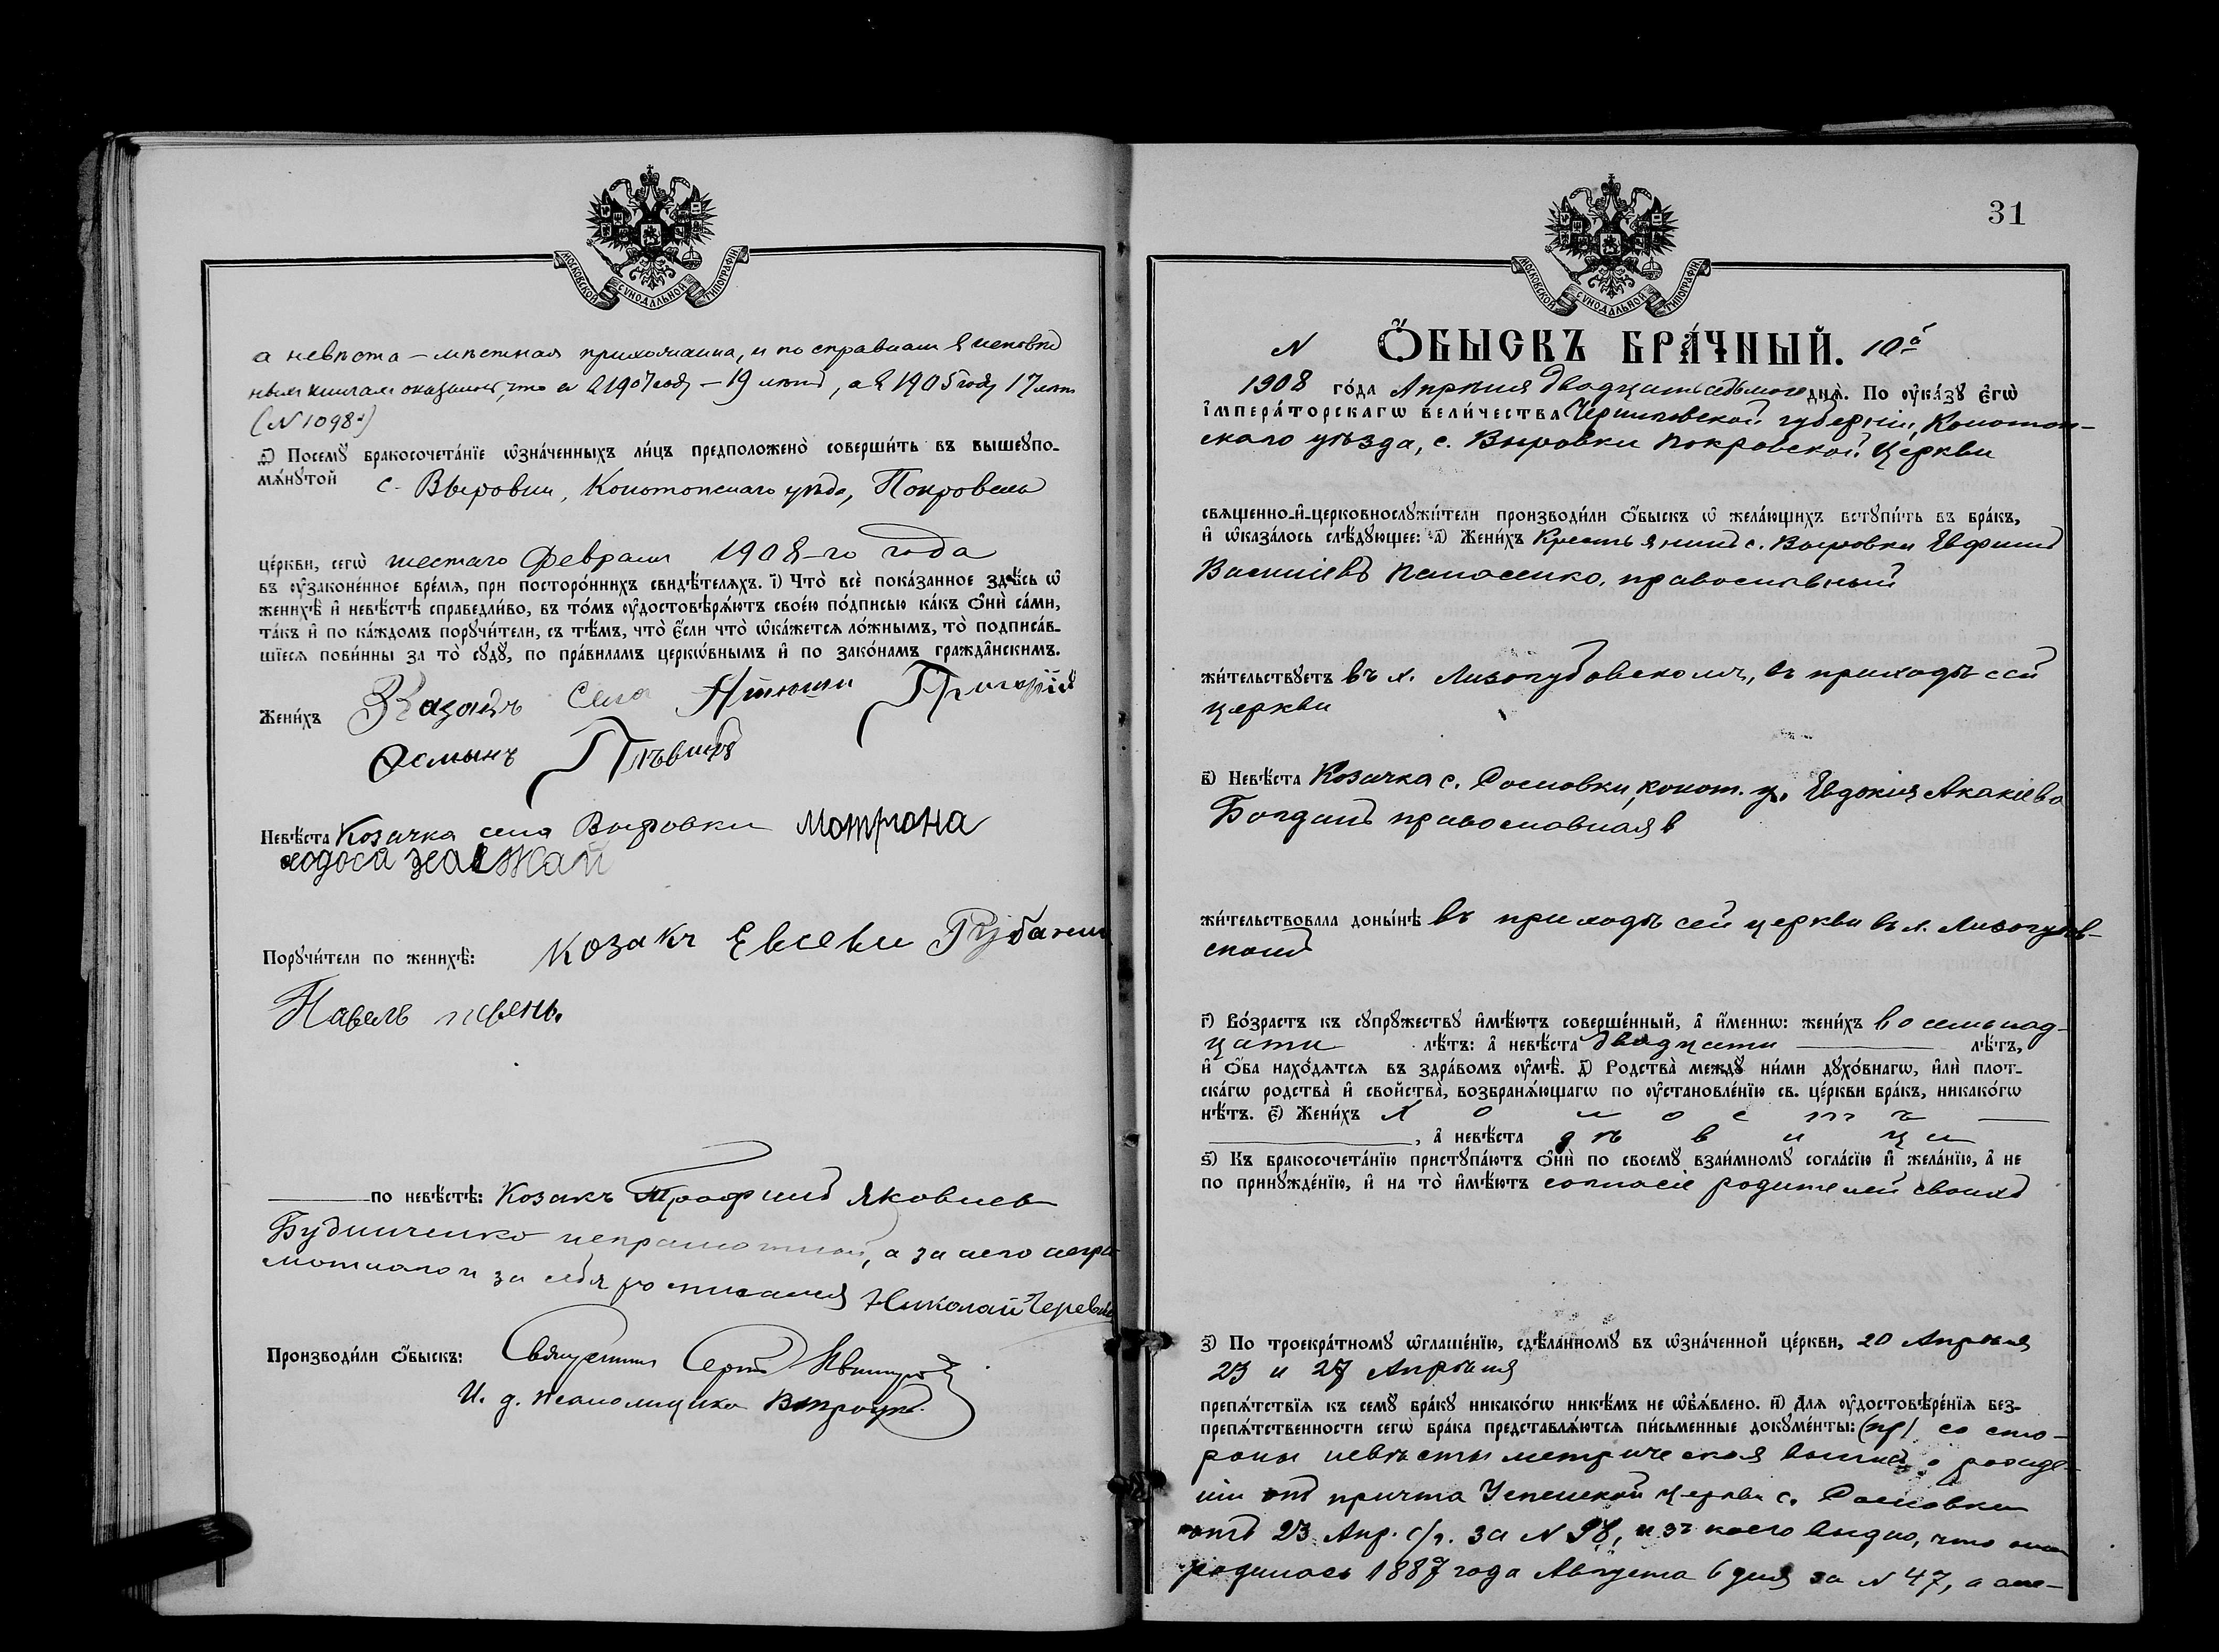 МОСКОВСКОЙ СУНОДАЛЬНОЙ ТИПОГРАФІИ
а невѣста – мѣстная прихожанка, и по справкам в исповѣд
ным книгам оказалось, что в 1907 году – 19 лѣтъ, а в 1905 году 17 лѣтъ
(N 1098)
д҃і) Посемꙋ̀ бракосочета́нїе ѡ҆зна́ченныхъ ли́цъ предположено̀ соверши́ть въ вышеꙋпо-
мѧ́нꙋтой с. Выровки, Конотопскаго уѣзда, Покровской
це́ркви, сегѡ̀ шестаго Февраля 1908-го года
въ ᲂу҆зако́ненное вре́мѧ, при посторо́ннихъ свидѣ́телѧхъ. і҃) Что̀ всѐ пока́занное здѣ́сь ѡ҆
женихѣ̀ и҆ невѣ́стѣ справедли́во, въ то́мъ ᲂу҆достовѣрѧ́ютъ свое́ю по́дписью ка́къ ѻ҆нѝ са́ми,
та́къ и҆ по ка́ждомъ порꙋчи́тели, съ тѣ́мъ, что̀ є҆́сли что̀ ѡ҆ка́жетсѧ ло́жнымъ, то̀ подписа́в-
шїесѧ пови́нны за то̀ сꙋдꙋ̀, по пра́виламъ церкѡ́внымъ и҆ по зако́намъ гражда̑нскимъ.
Жени́хъ Казакъ Села Григорій
Невѣ́ста Козачка села Выровки мотрона
Порꙋчи́тели по женихѣ̀: козакъ Евсеви Рубанъ
Павелъ
по невѣ́стѣ: Козакъ Трофимъ Яковлев
неграмотный, а за него негра
мотнаго и за себя росписался Николай
Производи́ли ѻ҆́быскъ: Священникъ Сергій
И. д. псаломщика
31
МОСКОВСКОЙ СУНОДАЛЬНОЙ ТИПОГРАФІИ
N ѺБЫСКЪ БРА́ЧНЫЙ. 10й
1908 го́да Апрѣля двадцать седьмого днѧ̀. По ᲂу҆ка́зꙋ Є҆гѡ̀
І҆мпера́торскагѡ Вели́чества Черниговской губерніи, Конотоп-
скаго уѣзда, с. Выровки Покровской Церкви
свѧщенно-и҆-церковнослꙋжи́тели производи́ли ѻ҆́быскъ ѡ҆ жела́ющихъ встꙋпи́ть въ бра́къ,
и҆ ѡ҆каза́лось слѣ́дꙋющее: а҃) Жени́хъ Крестьянинъ с. Выровки Евфимъ
Василіевъ Панасенко, православный
жи́тельствꙋетъ въ х. Лизогубовскомъ, въ приходѣ сей
церкви
в҃) Невѣ́ста Козачка с. Сосновки, конот. у. Евдокія Акакіева
Богданъ православная
жи́тельствовала доны́нѣ въ приходѣ сей церкви въ х. Лизогубов-
скомъ
г҃) Во́зрастъ къ сꙋпрꙋ́жествꙋ и҆мѣ́ютъ соверше́нный, а҆ и҆́меннѡ: жени́хъ восемнад-
цати лѣ́тъ: а҆ невѣ́ста двадцати лѣ́тъ,
и҆ ѻ҆́ба нахо́дѧтсѧ въ здра́вомъ ᲂу҆мѣ̀. д҃) Родства̀ междꙋ̀ ни́ми дꙋхо́внагѡ, и҆лѝ плот-
ска́гѡ родства̀ и҆ сво́йства̀, возбранѧ́ющагѡ по ᲂу҆становле́нїю св. це́ркви бра́къ, никако́гѡ
нѣ́тъ. є҃) Жени́хъ холостъ
, а҆ невѣ́ста дѣвица
ѕ҃) Къ бракосочета́нїю пристꙋпа́ютъ ѻ҆нѝ по своемꙋ̀ взаи́мномꙋ согла́сїю и҆ жела́нїю, а҆ не
по принꙋжде́нїю, и҆ на то̀ и҆мѣ́ютъ согласіе родителей своихъ
з҃) По троекра́тномꙋ ѡ҆глаше́нїю, сдѣ́ланномꙋ въ ѡ҆зна́ченной це́ркви, 20 Апрѣля
23 и 27 Апрѣля
препѧ́тствїѧ къ семꙋ̀ бра́кꙋ никако́гѡ никѣ́мъ не ѡ҆б̾ѧ́влено. и҃) Длѧ ᲂу҆достовѣре́нїѧ без-
препѧ́тственности сегѡ̀ бра́ка представлѧ́ютсѧ пи́сьменные докꙋме́нты: со сто-
роны невѣсты метрическая выпись о рожде-
ніи отъ причта Успенской церкви с. Сосновки
отъ 23 Апр. с/г. за N 98, изъ коего видно, что она
родилась 1887 года Августа 6 дня за N 47, а